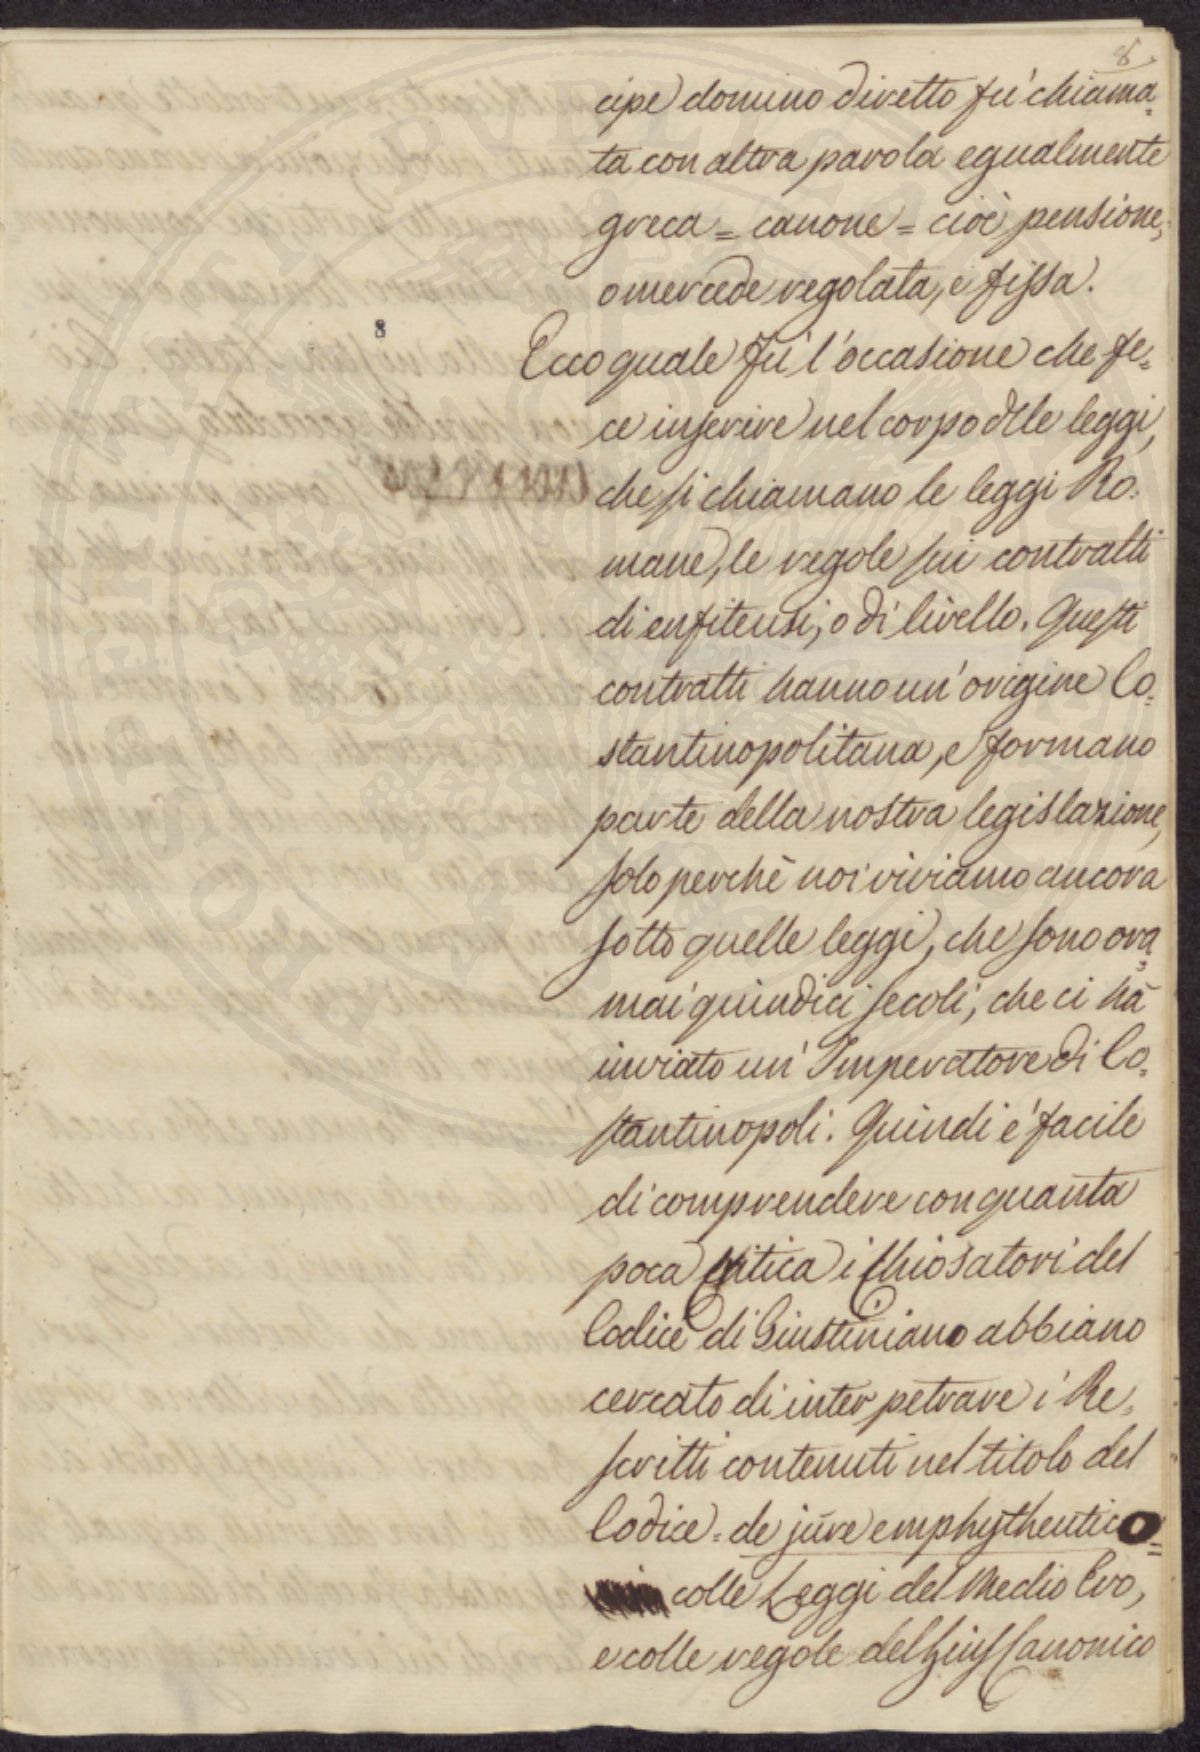 8.
cipe domino diretto fù chiama-
ta con altra parola egualmente
greca = canone = cioè pensione,
o mercede regolata, e fissa.
8
Ecco quale fù l'occasione che fe=
ce inserire nel corpo delle leggi,
che si chiamano le leggi Ro=
mane, le regole sui contratti
di enfiteusi, o di livello. Questi
contratti hanno un'origine Co=
stantinopolitana, e formano
parte della nostra legislazione,
solo perchè noi viviamo ancora
sotto quelle leggi, che sono ora=
mai quindici secoli, che ci hà
inviato un' Imperatore di Co=
stantinopoli. Quindi è facile
di comprendere con quanta
poca critica i Chiosatori del
Codice di Giustiniano abbiano
cercato di interpetrare i Re=
scritti contenuti nel titolo del
Codice = de jure emphytheutico =
colle Leggi del Medio Evo,
e colle regole del Gius Canonico